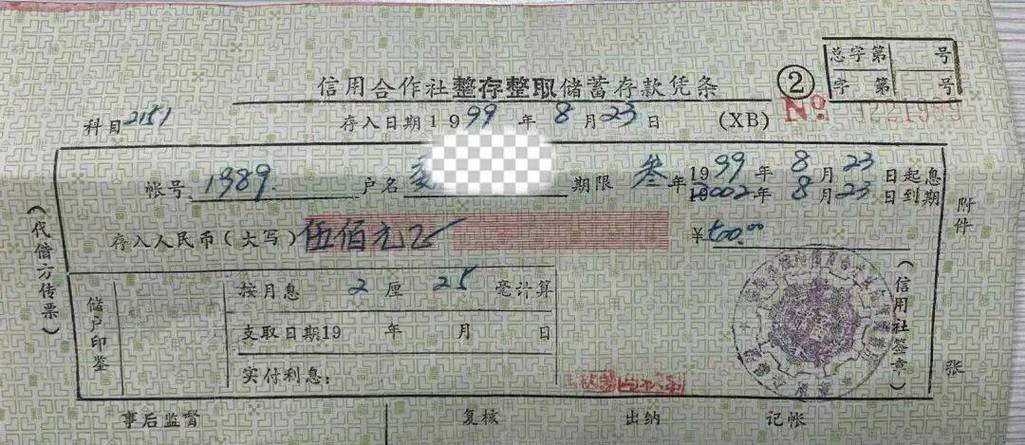 总字第 号
字 第 号
信用合作社整存整取储蓄存款凭条 ②
科目2151 存入日期1999年8月23日 (XB) №
帐号 1989. 户名 期限 叁年 1999年8月23日起息
2002年8月23日到期
存入人民币(大写)伍佰元 ¥500.00
按月息 2 厘 25 毫计算
支取日期19 年 月 日
实付利息:
储户印鉴
(代借方传票)
(信用社签章)
附件
张
事后监督 复核 出纳 记帐